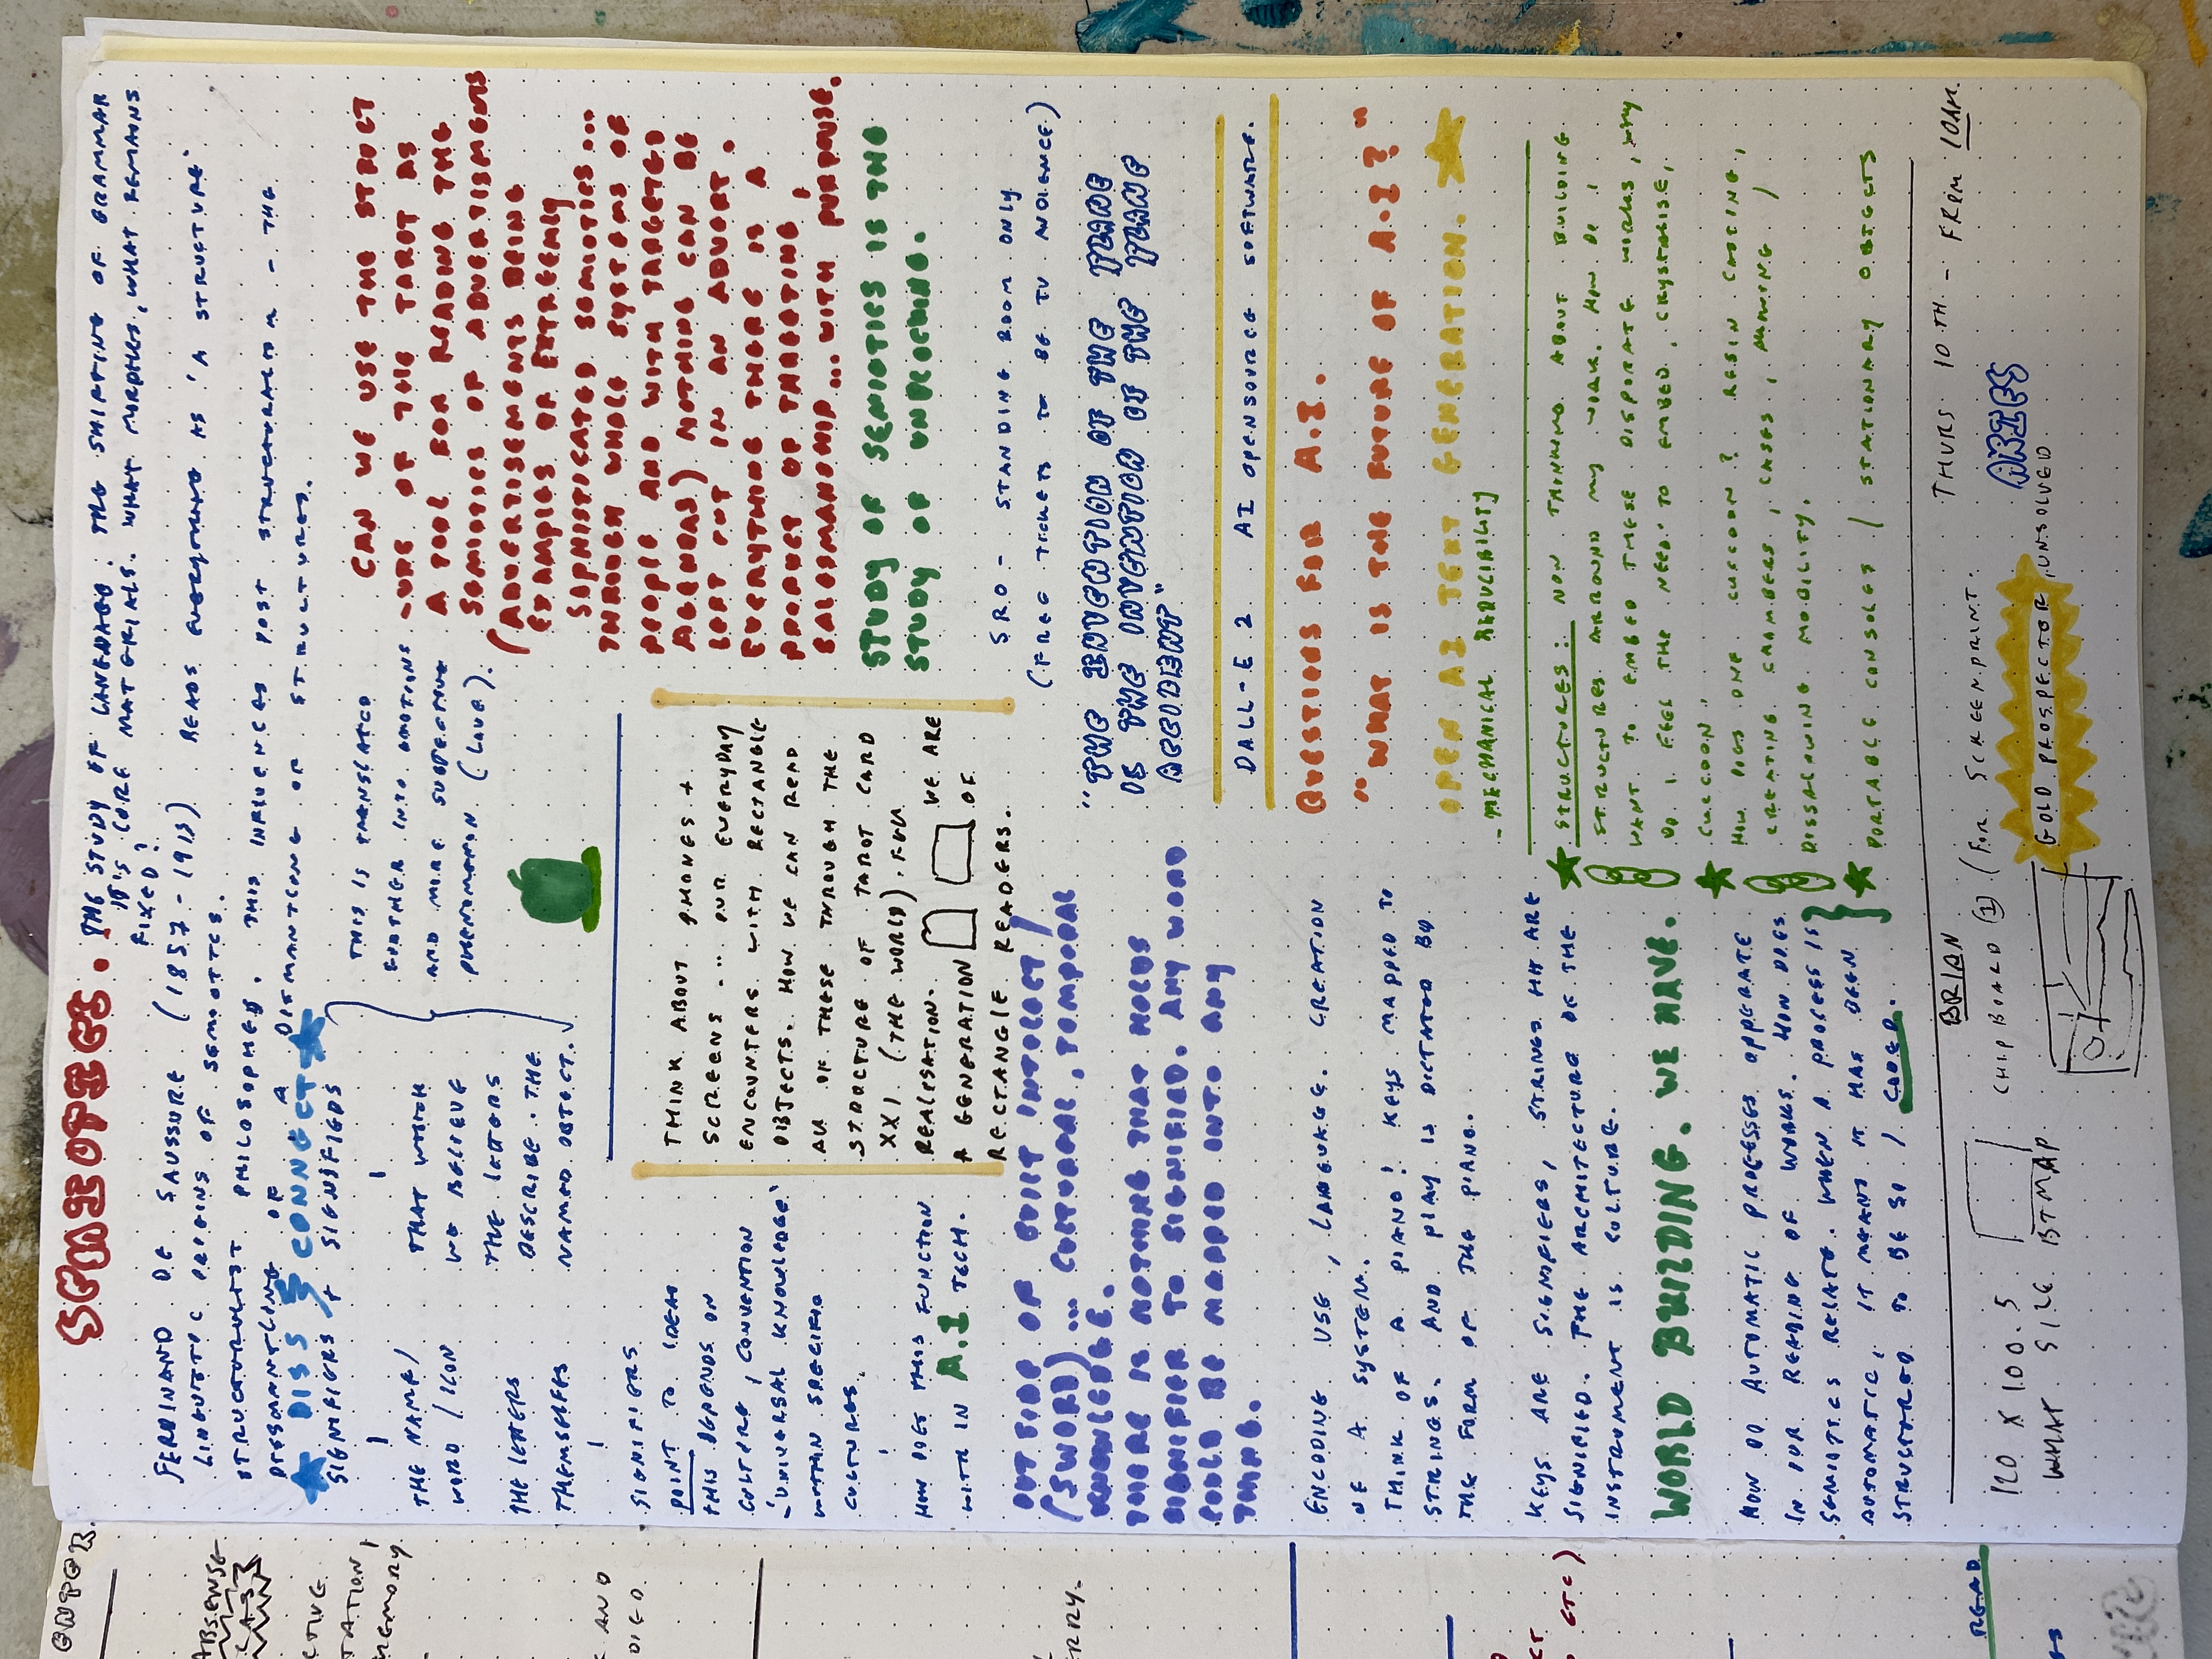 SEMIOTICS. THE STUDY OF LANGUAGE: THE SHIFTING OF GRAMMAR
IT'S CORE MATERIALS. WHAT MORPHES, WHAT REMAINS
FIXED?
FERDINAND DE SAUSSURE (1857-1913) READS EVERYTHING AS 'A STRUCTURE'
LINGUISTIC ORIGINS OF SEMIOTICS.
STRUCTURALIST PHILOSOPHER. THIS INFLUENCES POST STRUCTURALISM - THE
DISMANTLING OF A DISMANTLING OF STRUCTURES.
DISS CONNECT
SIGNIFIERS + SIGNIFIEDS
THE NAME/
WORD/ICON
THE LETTERS
THEMSELVES
THAT WHICH
WE BELIEVE
THE LETTERS
DESCRIBE. THE
NAMED OBJECT.
THIS IS TRANSLATED
FURTHER INTO EMOTIONS
AND MORE SUBJECTIVE
PHENOMENON (LOVE).
SIGNIFIERS
POINT TO IDEAS
THIS DEPENDS ON
CULTURE, CONVENTION
-'UNIVERSAL KNOWLEDGE'
WITHIN SPECIFIC
CULTURES.
HOW DOES THIS FUNCTION
WITH IN A.I TECH.
THINK ABOUT PHONES +
SCREENS .. OUR EVERYDAY
ENCOUNTERS WITH RECTANGLE
OBJECTS. HOW WE CAN READ
ALL OF THESE THROUGH THE
STRUCTURE OF TAROT CARD
XXI (THE WORLD). FULL
REALISATION. WE ARE
A GENERATION OF
RECTANGLE READERS.
OUTSIDE OF BUILT INTELLECT/
(SWORD)... CULTURAL, TEMPORAL
KNOWLEDGE.
THERE IS NOTHING THAT HOLDS
SIGNIFIER TO SIGNIFIED. ANY WORD
COULD BE MAPPED INTO ANY
THING.
ENCODING USE, LANGUAGE. CREATION
OF A SYSTEM.
THINK OF A PIANO! KEYS MAPPED TO
STRINGS. AND PLAY IS DICTATED BY
THE FORM OF THE PIANO.
KEYS ARE SIGNIFIERS, STRINGS HIT ARE
SIGNIFIED. THE ARCHITECTURE OF THE
INSTRUMENT IS CULTURE.
WORLD BUILDING. WE HAVE.
HOW DO AUTOMATIC PROCESSES OPPERATE
IN OUR READING OF WORKS. HOW DOES
SEMIOTICS RELATE. WHEN A PROCESS IS
AUTOMATIC, IT MEANS IT HAS BEEN
STRUCTURED TO BE SO / CODED.
CAN WE USE THE STRUCT
-URE OF THE TAROT AS
A TOOL FOR READING THE
SEMIOTICS OF ADVERTISMENTS
(ADVERTISEMENTS BEING
EXAMPLES OF EXTREEMLY
SOPHISTICATED SEMIOTICS...
THROUGH WHOLE SYSTEMS OF
PEOPLE AND WITH TARGETED
AGENDAS) NOTHING CAN BE
LEFT OUT IN AN ADVERT.
EVERYTHING THERE IS A
PRODUCT OF THEATING,
SALESMANSHIP...WITH PURPOSE.
STUDY OF SEMIOTICS IS THE
STUDY OF UNDOCKING.
SRO - STANDING ROOM ONLY
(FREE TICKETS TO BE TV AUDIENCE)
"THE INVENTION OF THE PLANE
IS THE INVENTION OF THE PLANE
ACCIDENT"
DALL-E 2 AI OPENSOURCE SOFTWARE.
QUESTIONS FOR A.I.
"WHAT IS THE FUTURE OF A.I?"
OPEN AI TEXT GENERATION.
-MECHANICAL REPRODUCIBILITY
STRUCTURES: NON THINKING ABOUT BUILDING
STRUCTURES ARROUND MY WORK. HOW DO I
WANT TO EMBED THESE DISPARATE WORLDS, WHY
DO I FEEL THE NEED TO EMBED, CRYSTALISE,
CUCCOON.
HOW DOES ONE CUCCOON? RESIN CASTING,
CREATING CHAMBERS, CASES,
DISSALOWING MOBILITY.
PORTABLE CONSOLES / STATIONARY OBJECTS
THURS 10TH - FROM 10AM
BRIAN
120 X 100.5
CHIPBOARD (1) (FOR SCREENPRINT.
WHAT SIZE BITMAP
GOLD PROSPECTOR, UNSOLVED
ARIES
ABSENSE
CTIVE
TATION,
MEMORY
AND
DIED
ERRY.
ETC)
READ